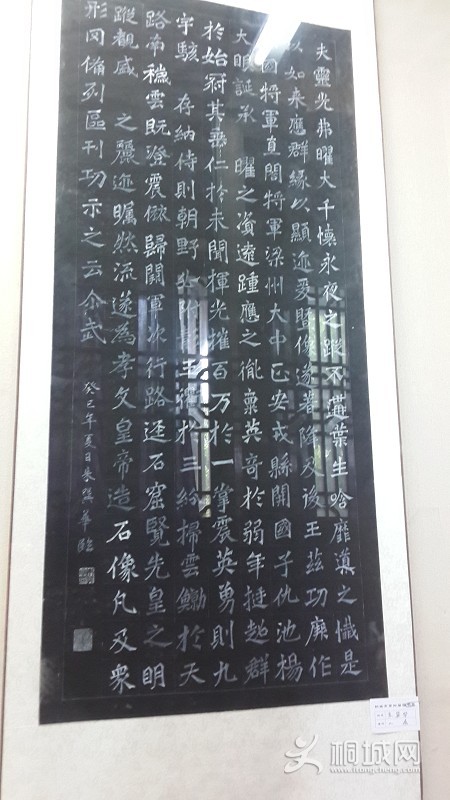 夫靈光弗曜大千懷永夜之蹤不遘葉生唅靡導之懺是
以如來應群緣以顯迹爰暨像遂著降及後王茲功厥作
國將軍直閤將軍梁州大中正安戎縣開國子仇池楊
大眼誕承 曜之資遠踵應之胤稟英奇於弱年挺超群
於始冠其垂仁扵未聞揮光摧百万於一掌震英勇則九
宇駭 存納侍則朝野 王衢於三紛掃雲 於天
路南穢雲既澄震旅歸闕軍次行路逕石窟覽先皇之明
蹤觀盛 之麗迹矚然流遂為孝文皇帝造石像凡及衆
形罔備列區刊功示之云尒武
癸巳年夏日朱 華臨
桐城网
www.itongcheng.com